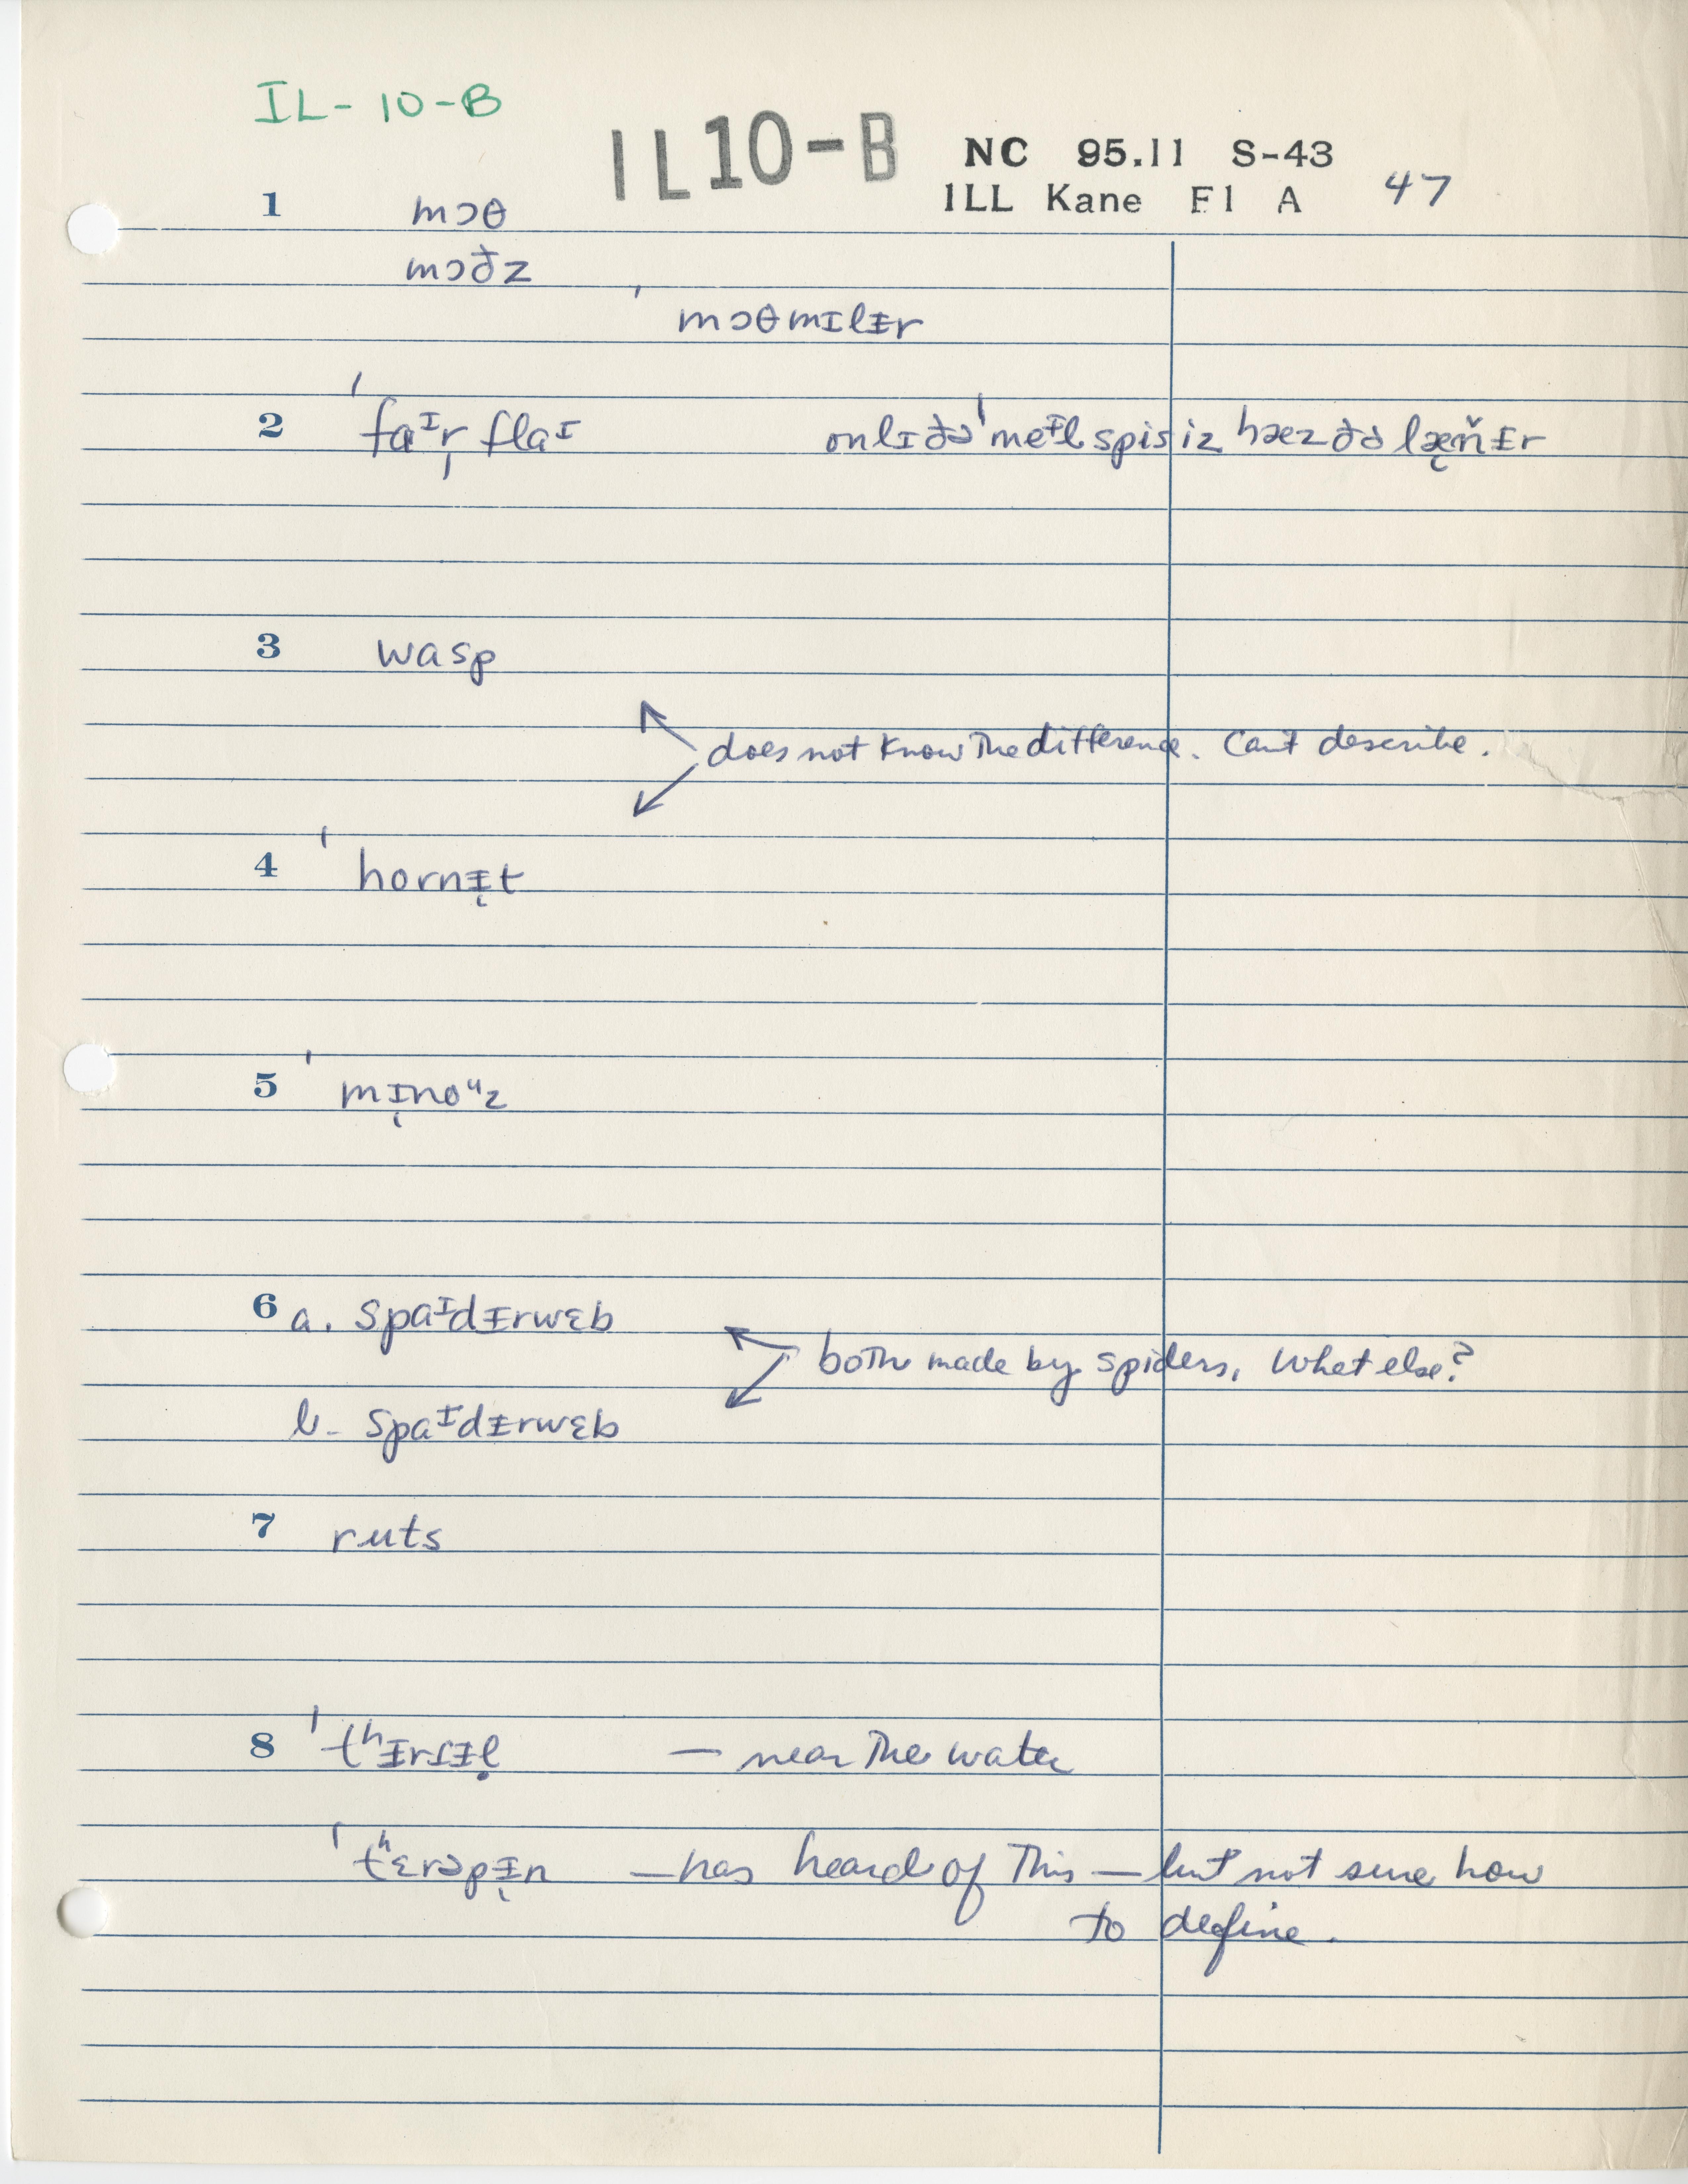 IL-10-B
IL10-B NC 95.11 S-43
ILL Kane F1 A 47
1 mɔθ
mɔðz
ˈmɔθmɪlɨr
2 ˈfaᶦr̩flaɪ onlɪ ðə ˈmeᶧl spisiz hæz ðə læ̨ňɨr
3 wasp
does not know the difference. Can't describe.
4 ˈhornɨ̨t
5 ˈmɪ̨noᵘz
6 a. spaᶧdɨrwɛb
both made by spiders, What else?
b. spaᶧdɨrwɛb
7 ruts
8 ˈtʰɨrɾɨḷ — near the water
ˈtʰɛrəpɨ̨n — has heard of this — but not sure how
to define.